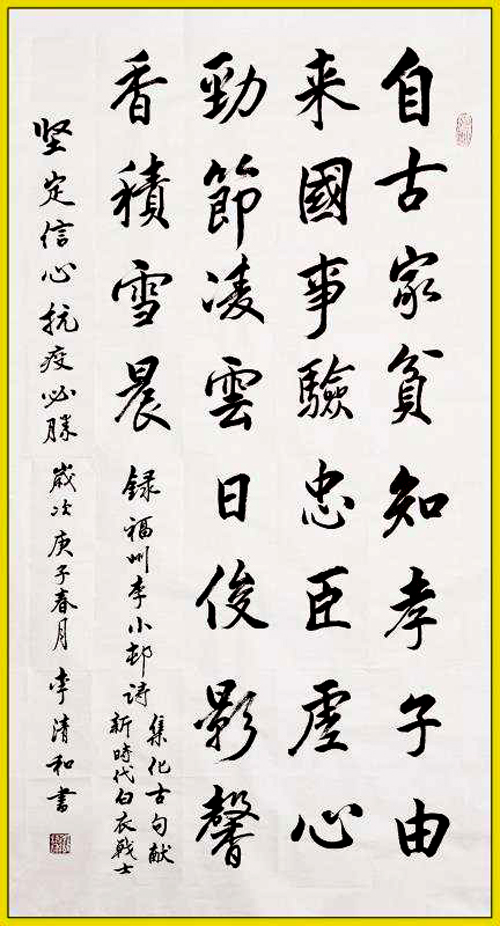 自古家贫知孝子由
来國事驗忠臣虚心
勁節凌雲日俊影馨
香積雪晨
録福州李小邨詩
集化古句献
新時代白衣戰士
坚定信心抗疫必勝歲次庚子春月李清和書